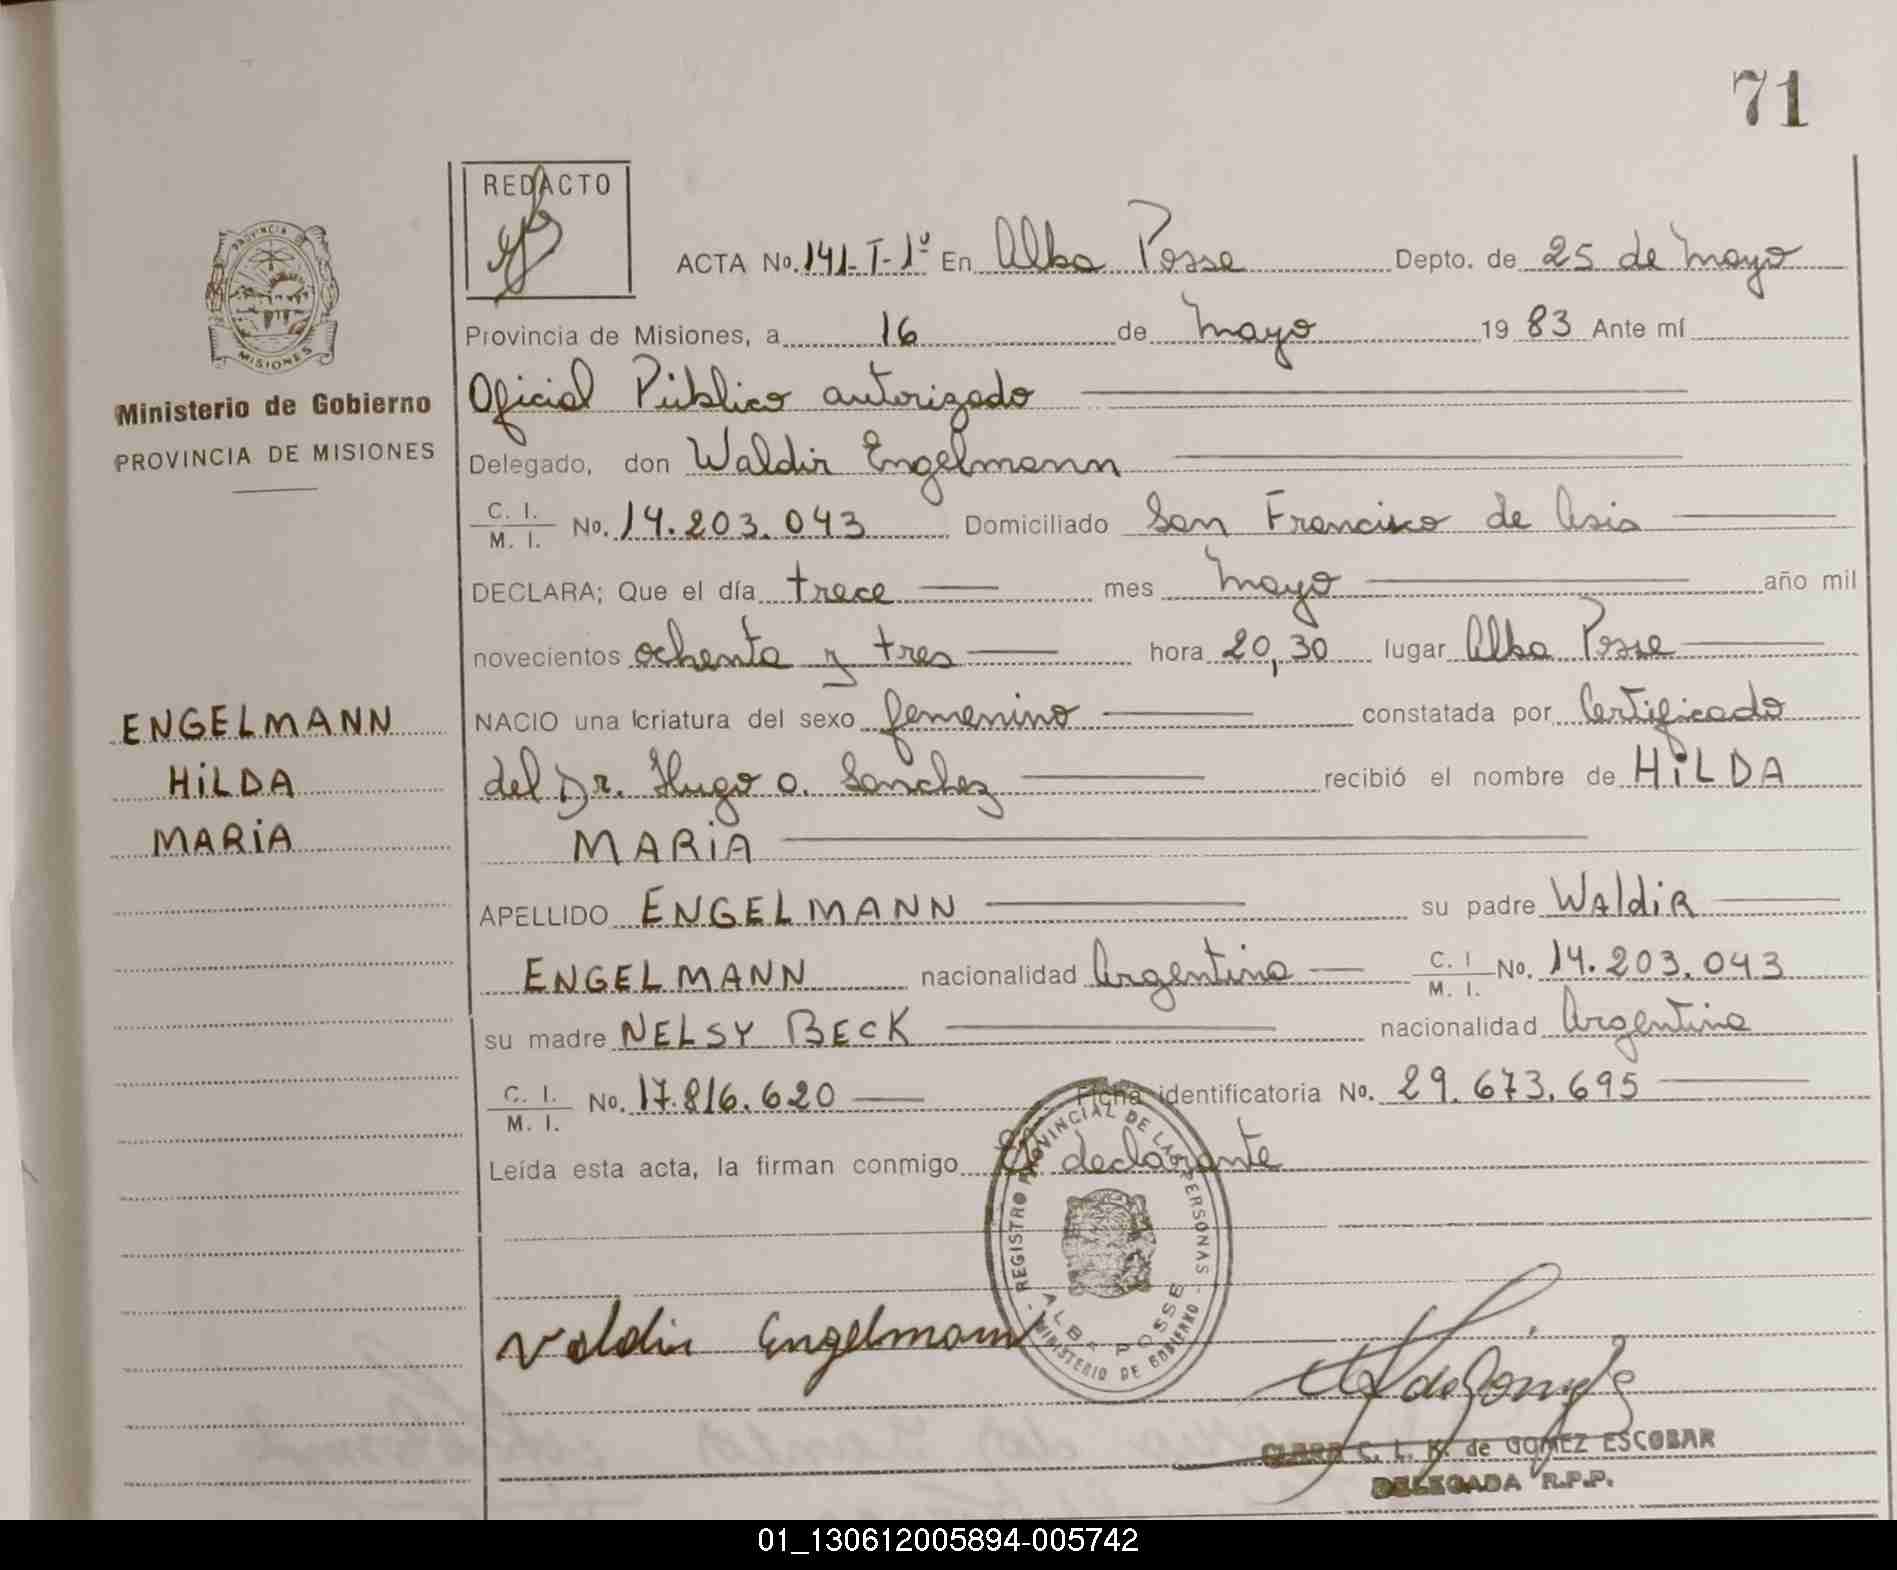 71
REDACTO
ACTA No. 141-T-1º En Alba Posse Depto. de 25 de Mayo
Provincia de Misiones, a 16 de Mayo 19 83 Ante mí
Oficial Público autorizado
Delegado, don Waldir Engelmann
C. I. / M. I. No. 14.203.043 Domiciliado San Francisco de Asis
DECLARA; Que el día trece mes Mayo año mil
novecientos ochenta y tres hora 20,30 lugar Alba Posse
NACIO una criatura del sexo femenino constatada por Certificado
del Dr. Hugo O. Sanchez recibió el nombre de HiLDA
MARiA
APELLIDO ENGELMANN su padre WAldiR
ENGELMANN nacionalidad Argentina C. I / M. I. No. 14.203.043
su madre NELSY BECK nacionalidad Argentina
C. I. / M. I. No. 17.816.620 Ficha identificatoria No. 29.673.695
Leída esta acta, la firman conmigo El declarante
Valdir Engelmann
CLARA C. L. K. de GOMEZ ESCOBAR
DELEGADA R.P.P.
PROVINCIA DE
MISIONES
Ministerio de Gobierno
PROVINCIA DE MISIONES
ENGELMANN
HiLDA
MARiA
REGISTRO PROVINCIAL DE LAS PERSONAS
ALBA POSSE
MINISTERIO DE GOBIERNO
01_130612005894-005742